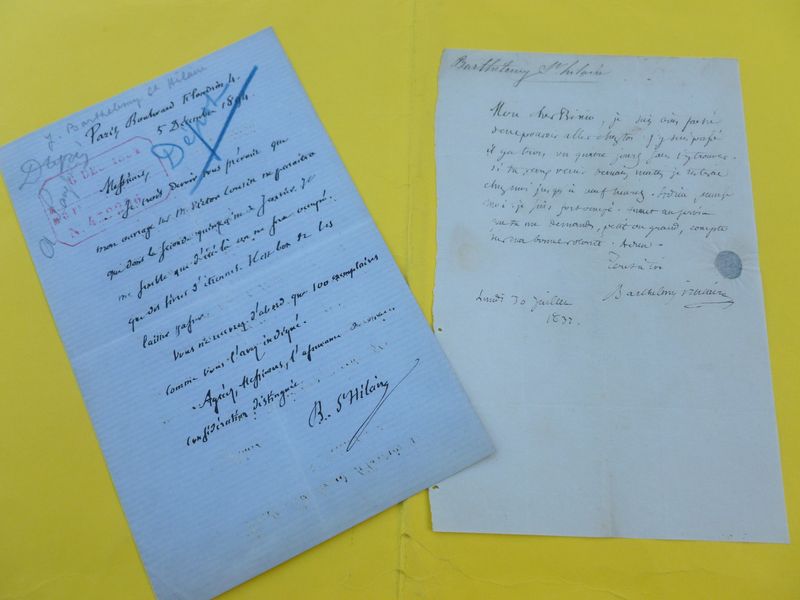 J. Barthelemy St Hilaire
Paris Boulevard Flandrin 4.
5 Décembre 1894
Dépôt
Dépôt
à Paris
6 DEC. 1894
Messieurs,
Je crois devoir vous prévenir que
mon ouvrage sur M. Victor Cousin ne paraîtra
que dans la seconde quinzaine de Janvier. Il
me semble que d'ici là on ne sera occupé
que des livres d'étrennes. Il est bon de les
laisser passer.
Vous ne recevrez d'abord que 100 exemplaires
comme vous l'avez indiqué.
Agréez, Messieurs, l'assurance de ma
considération distinguée
B. St Hilaire
Barthélemy St hilaire
Mon cher, je suis bien
aller chez toi. J'y suis passé
il y a trois ou quatre jours sans t'y trouver.
Si tu
chez moi jusqu'à neuf heures. Adieu,
moi. Je suis fort occupé.
que tu me demandes, petit ou grand, compte
sur ma bonne volonté. Adieu.
Tout à toi
Barthélemy St hilaire
Lundi 30 juillet
1832.